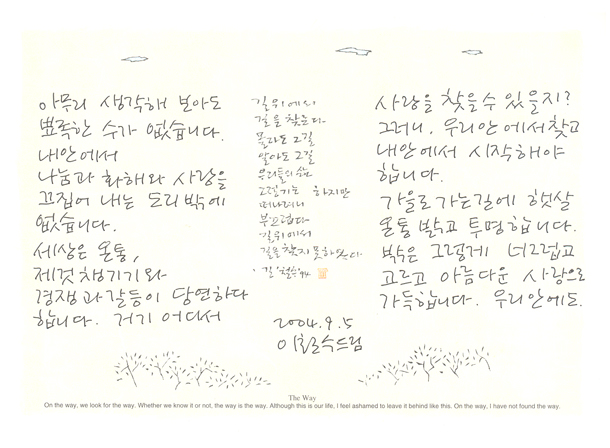 아무리 생각해 보아도
뾰족한 수가 없습니다.
내안에서
나눔과 화해와 사랑을
끄집어 내는 도리밖에
없습니다.
세상은 온통,
제것 챙기기와
경쟁과 갈등이 당연하다
합니다. 거기 어디서
길위에서
길을 찾는다
몰라도 그길
알아도 그길
우리들의 삶은
그렇기도 하지만
떠나려니
부끄럽다
길위에서
길을 찾지 못하였다
'길' 철수 '94
2004.9.5
이철수드림
사랑을 찾을수 있을지?
그러니, 우리안에서찾고
내안에서 시작해야
합니다.
가을로가는길에 햇살
온통 밝고 투명합니다.
밖은 그렇게 너그럽고
고르고 아름다운 사랑으로
가득합니다. 우리안에도.
The Way
On the way, we look for the way. Whether we know it or not, the way is the way. Although this is our life, I feel ashamed to leave it behind like this. On the way, I have not found the way.